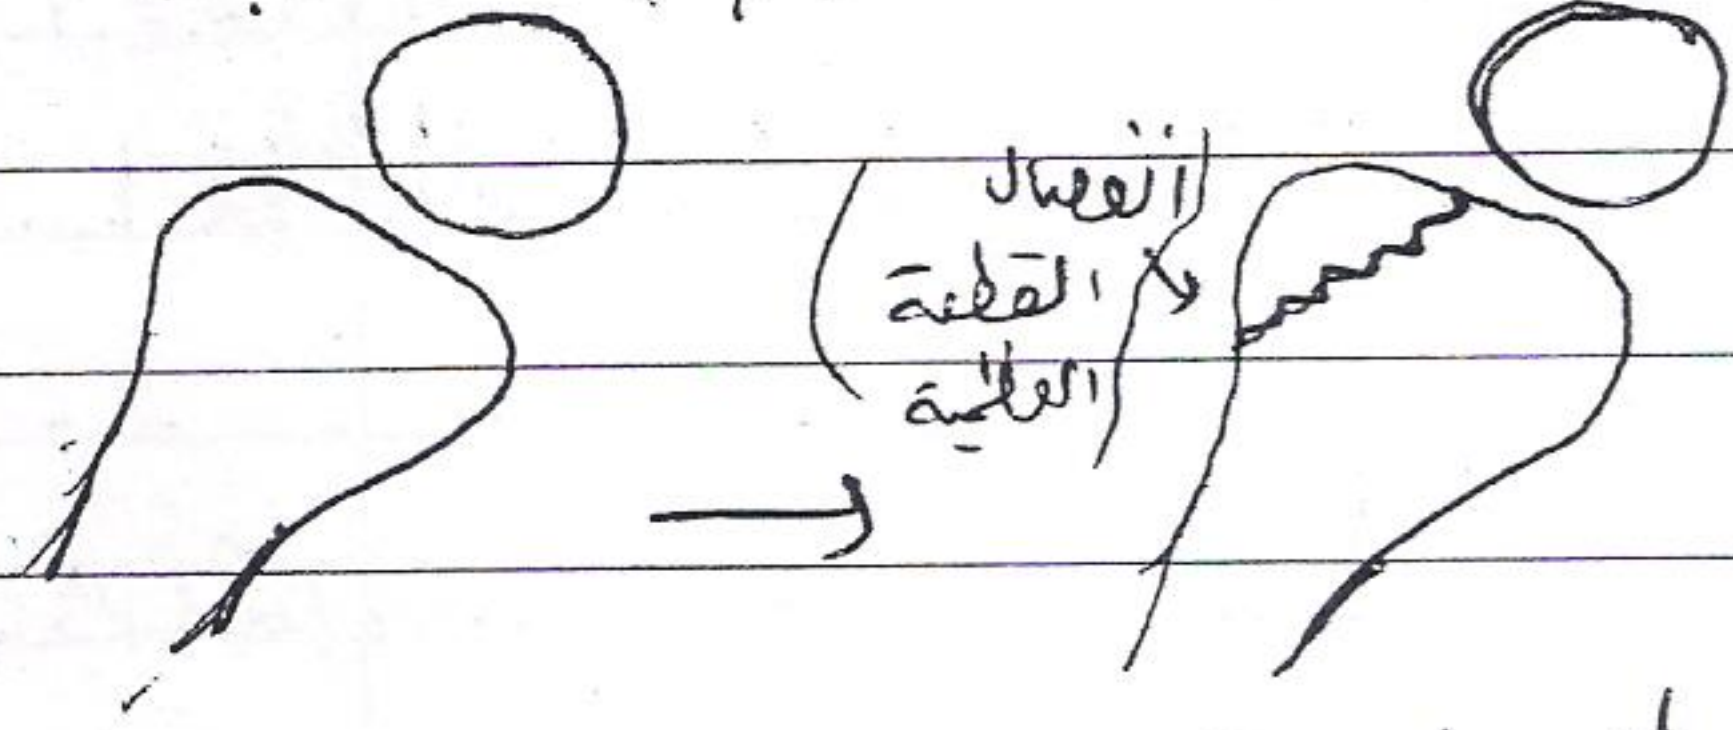 انفصال
القطعة
العظمية